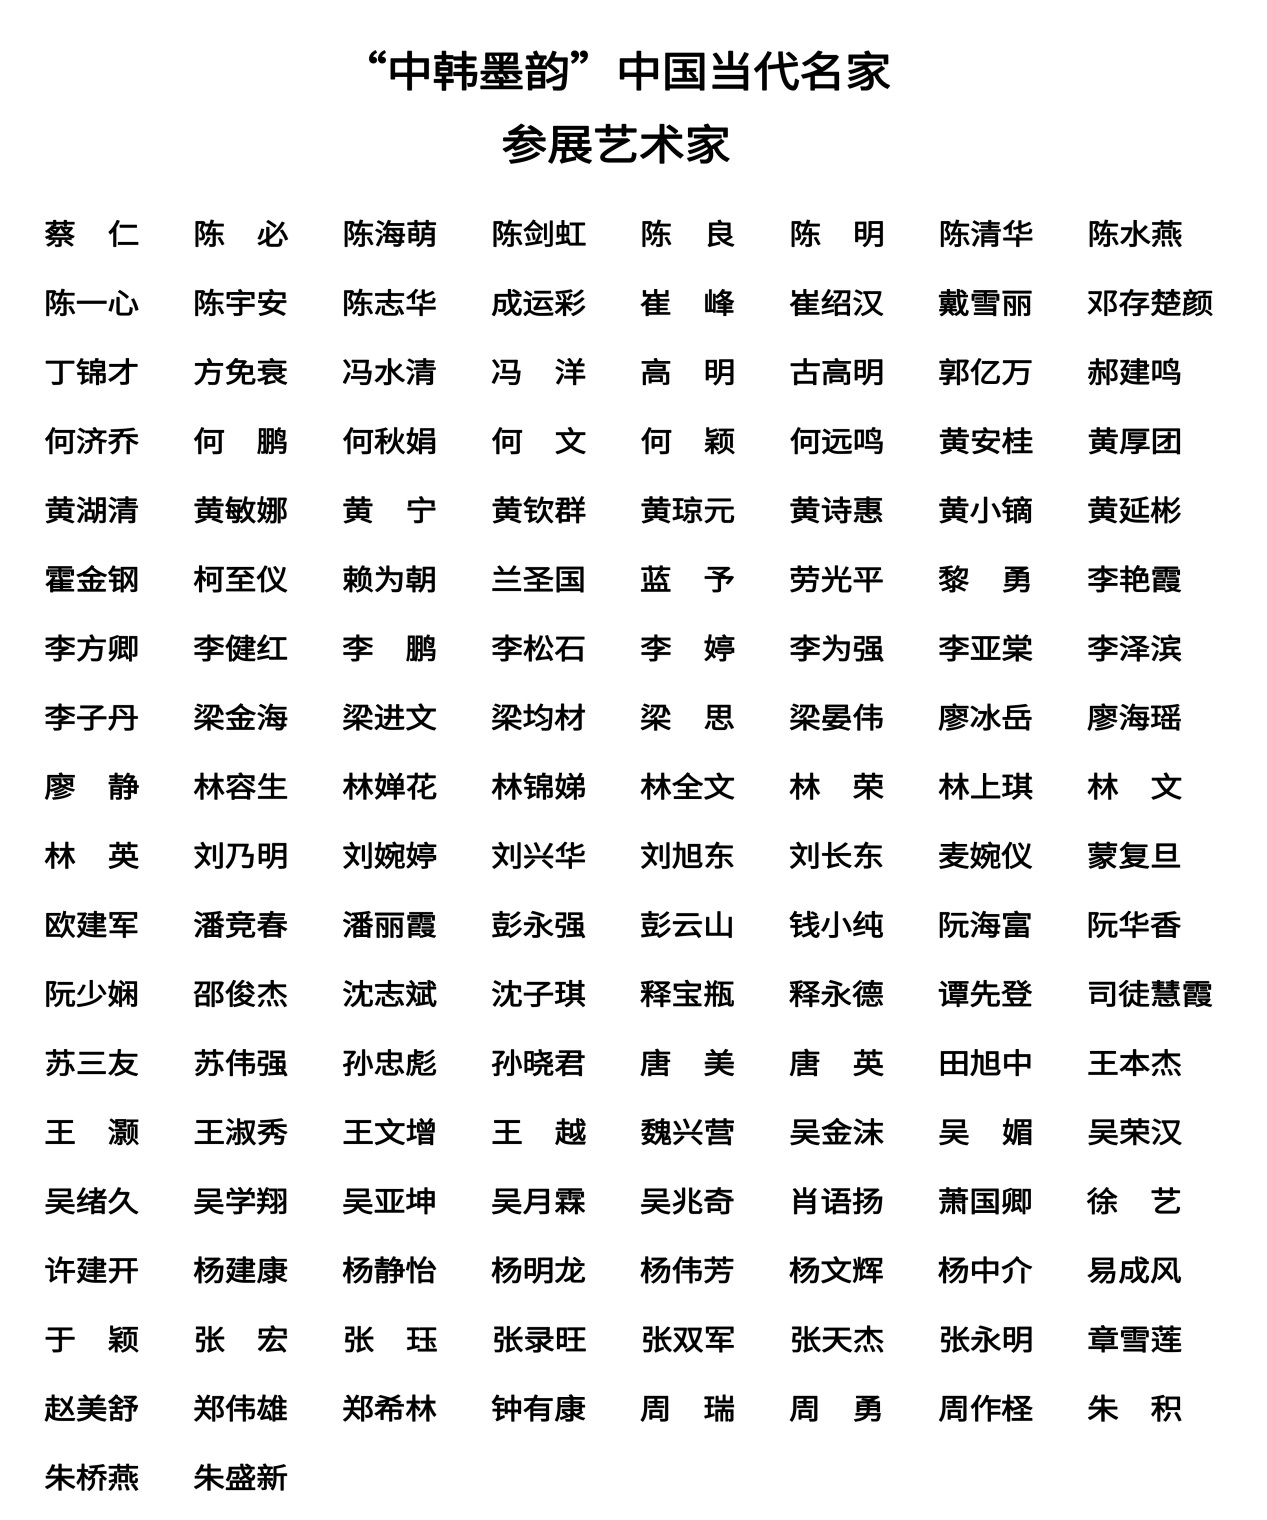 “中韩墨韵”中国当代名家
参展艺术家
蔡　仁 陈　必 陈海萌 陈剑虹 陈　良 陈　明 陈清华 陈水燕
陈一心 陈宇安 陈志华 成运彩 崔　峰 崔绍汉 戴雪丽 邓存楚颜
丁锦才 方免衰 冯水清 冯　洋 高　明 古高明 郭亿万 郝建鸣
何济乔 何　鹏 何秋娟 何　文 何　颖 何远鸣 黄安桂 黄厚团
黄湖清 黄敏娜 黄　宁 黄钦群 黄琼元 黄诗惠 黄小镝 黄延彬
霍金钢 柯至仪 赖为朝 兰圣国 蓝　予 劳光平 黎　勇 李艳霞
李方卿 李健红 李　鹏 李松石 李　婷 李为强 李亚棠 李泽滨
李子丹 梁金海 梁进文 梁均材 梁　思 梁晏伟 廖冰岳 廖海瑶
廖　静 林容生 林婵花 林锦娣 林全文 林　荣 林上琪 林　文
林　英 刘乃明 刘婉婷 刘兴华 刘旭东 刘长东 麦婉仪 蒙复旦
欧建军 潘竞春 潘丽霞 彭永强 彭云山 钱小纯 阮海富 阮华香
阮少娴 邵俊杰 沈志斌 沈子琪 释宝瓶 释永德 谭先登 司徒慧霞
苏三友 苏伟强 孙忠彪 孙晓君 唐　美 唐　英 田旭中 王本杰
王　灏 王淑秀 王文增 王　越 魏兴营 吴金沫 吴　媚 吴荣汉
吴绪久 吴学翔 吴亚坤 吴月霖 吴兆奇 肖语扬 萧国卿 徐　艺
许建开 杨建康 杨静怡 杨明龙 杨伟芳 杨文辉 杨中介 易成风
于　颖 张　宏 张　珏 张录旺 张双军 张天杰 张永明 章雪莲
赵美舒 郑伟雄 郑希林 钟有康 周　瑞 周　勇 周作柽 朱　积
朱桥燕 朱盛新